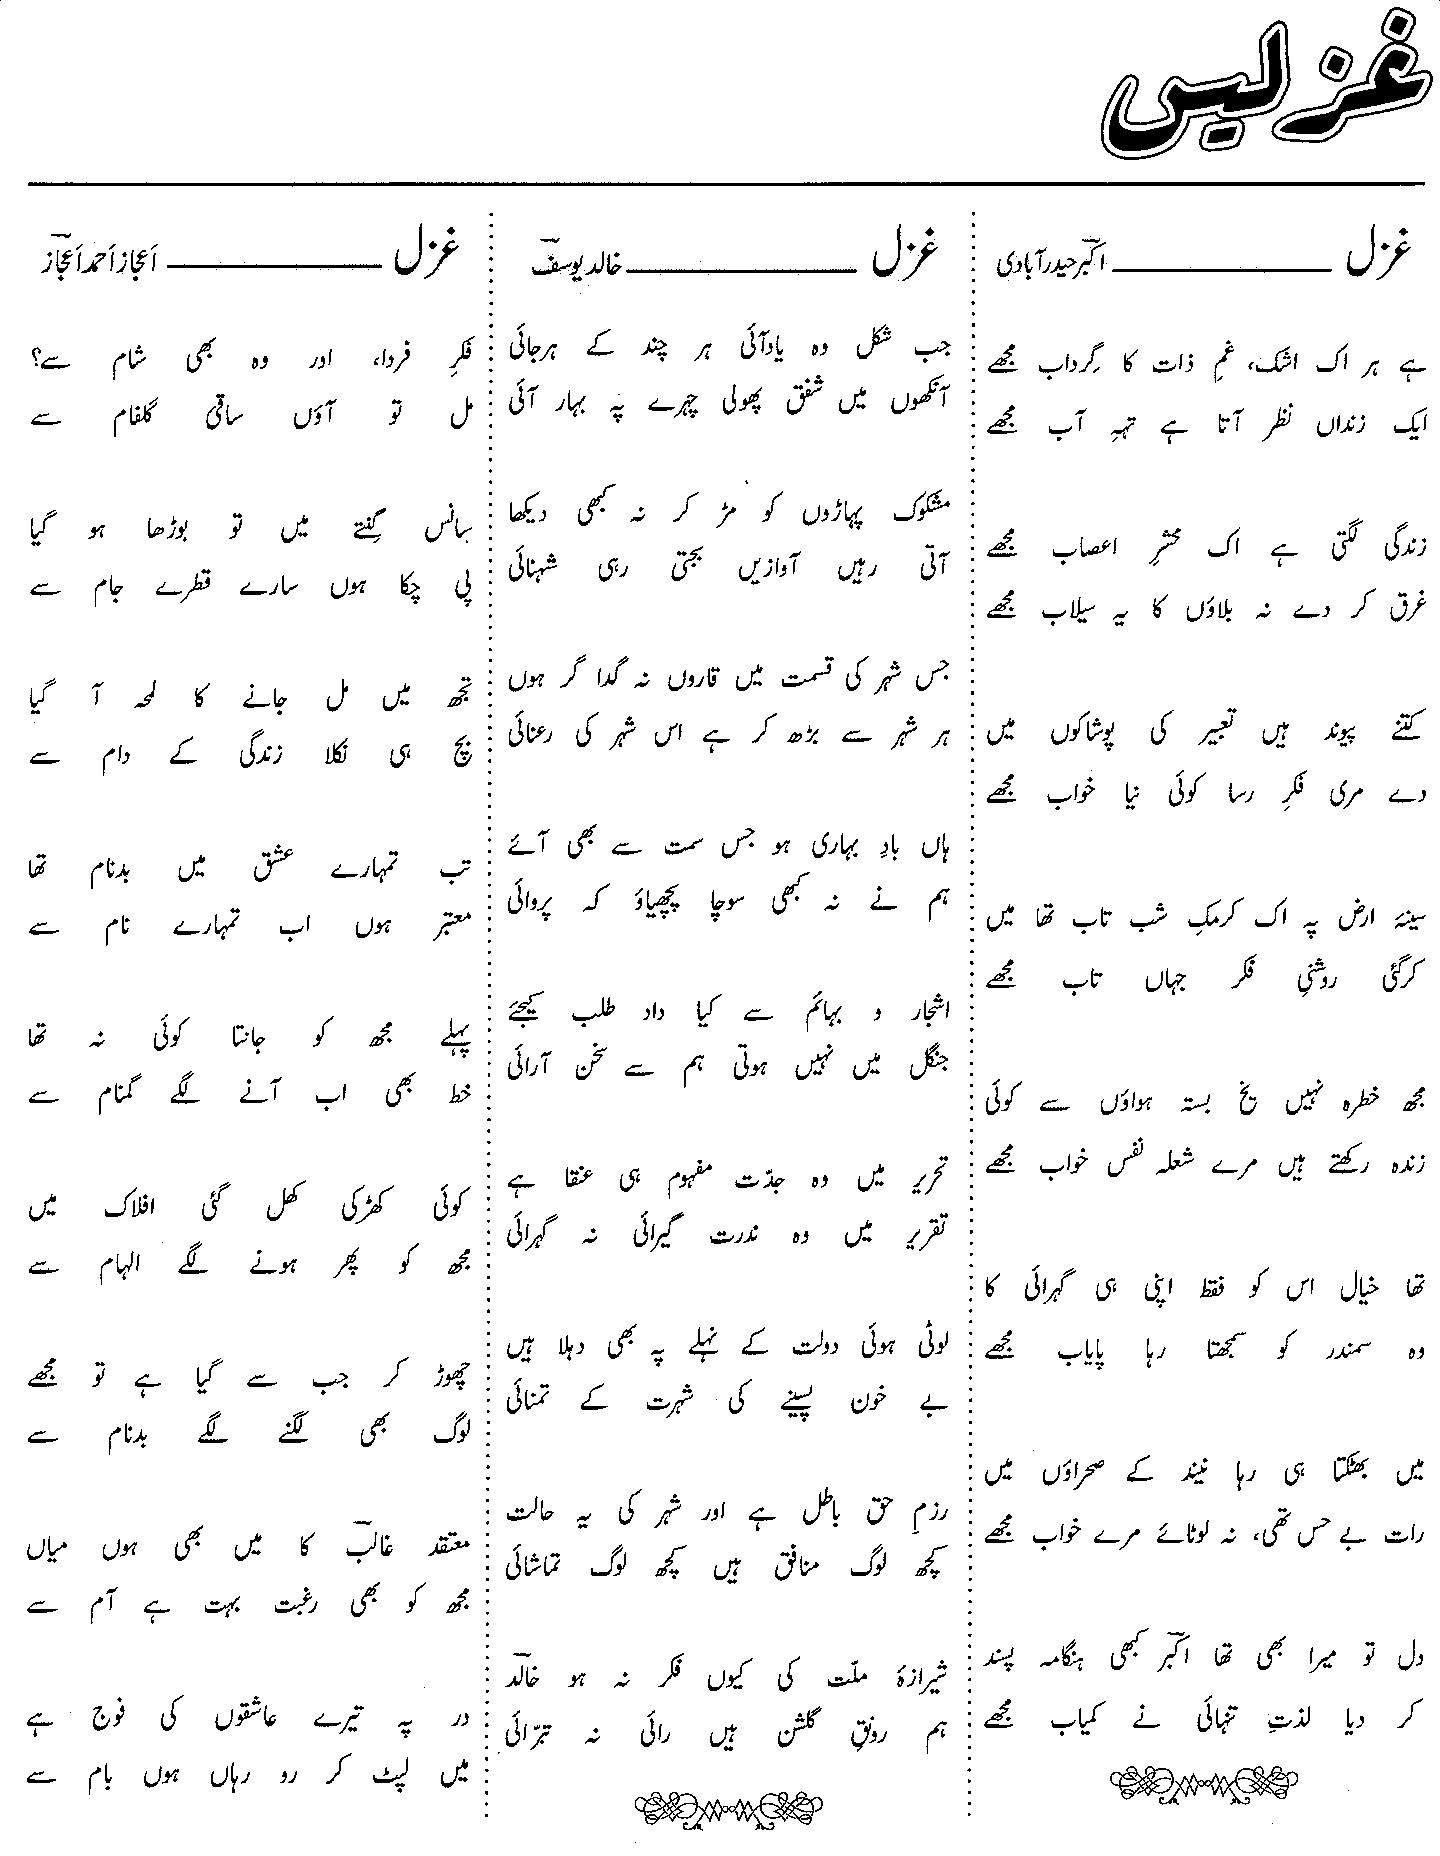 غزلیں
غزل ــــــــ اکبرؔ حیدرآبادی
ہے ہر اک اشک، غمِ ذات کا گِرداب مجھے
ایک زنداں نظر آتا ہے تہہِ آب مجھے
زندگی لگتی ہے اک محشرِ اعصاب مجھے
غرق کر دے نہ بلاؤں کا یہ سیلاب مجھے
کتنے پیوند ہیں تعبیر کی پوشاکوں میں
دے مری فکرِ رسا کوئی نیا خواب مجھے
سینۂ ارض پہ اک کرمکِ شب تاب تھا میں
کرگئی روشنیِ فکر جہاں تاب مجھے
مجھ خطرہ نہیں یخ بستہ ہواؤں سے کوئی
زندہ رکھتے ہیں مرے شعلہ نفس خواب مجھے
تھا خیال اس کو فقط اپنی ہی گہرائی کا
وہ سمندر کو سمجھتا رہا پایاب مجھے
میں بھٹکتا ہی رہا نیند کے صحراؤں میں
رات بے حس تھی، نہ لوٹائے مرے خواب مجھے
دل تو میرا بھی تھا اکبرؔ کبھی ہنگامہ پسند
کر دیا لذتِ تنہائی نے کمیاب مجھے
غزل ــــــــ خالد یوسفؔ
جب شکل وہ یادآئی ہر چند کے ہرجائی
آنکھوں میں شفق پھولی چہرے پہ بہار آئی
مشکوک پہاڑوں کو مڑ کر نہ کبھی دیکھا
آتی رہیں آوازیں بجتی رہی شہنائی
جس شہر کی قسمت میں قاروں نہ گدا گر ہوں
ہر شہر سے بڑھ کر ہے اس شہر کی رعنائی
ہاں بادِ بہاری ہو جس سمت سے بھی آئے
ہم نے نہ کبھی سوچا پچھیاؤ کہ پروائی
اشجار و بہائم سے کیا داد طلب کیجئے
جنگل میں نہیں ہوتی ہم سے سخن آرائی
تحریر میں وہ جدّت مفہوم ہی عنقا ہے
تقریر میں وہ ندرت گیرائی نہ گہرائی
لوٹی ہوئی دولت کے نہلے پہ بھی دہلا ہیں
بے خون پسینے کی شہرت کے تمنائی
رزمِ حق باطل ہے اور شہر کی یہ حالت
کچھ لوگ منافق ہیں کچھ لوگ تماشائی
شیرازۂ ملّت کی کیوں فکر نہ ہو خالدؔ
ہم رونقِ گلشن ہیں رائی نہ تبرّائی
غزل ــــــــ اَعجاز اَحمد اَعجازؔ
فکرِ فردا، اور وہ بھی شام سے؟
مل تو آؤں ساقیِ گلفام سے
سانس گِنتے میں تو بوڑھا ہو گیا
پی چکا ہوں سارے قطرے جام سے
تجھ میں مل جانے کا لمحہ آ گیا
بچ ہی نکلا زندگی کے دام سے
تب تمہارے عشق میں بدنام تھا
معتبر ہوں اب تمہارے نام سے
پہلے مجھ کو جانتا کوئی نہ تھا
خط بھی اب آنے لگے گمنام سے
کوئی کھڑکی کھل گئی افلاک میں
مجھ کو پھر ہونے لگے الہام سے
چھوڑ کر جب سے گیا ہے تو مجھے
لوگ بھی لگنے لگے بدنام سے
معتقد غالبؔ کا میں بھی ہوں میاں
مجھ کو بھی رغبت بہت ہے آم سے
در پہ تیرے عاشقوں کی فوج ہے
میں لپٹ کر رو رہاں ہوں بام سے